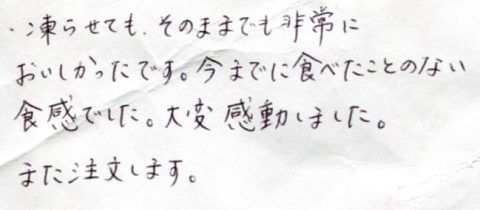 ・凍らせても、そのままでも非常に
おいしかったです。今までに食べたことのない
食感でした。大変感動しました。
また注文します。